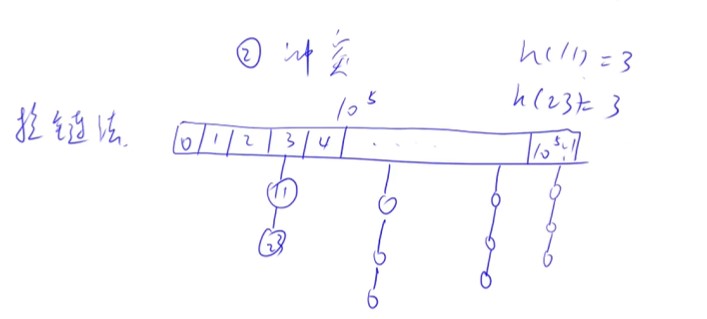 ② 冲突
h(11) = 3
h(23) = 3
10^5
拉链法
0 1 2 3 4 ...... 10^5-1
11
23